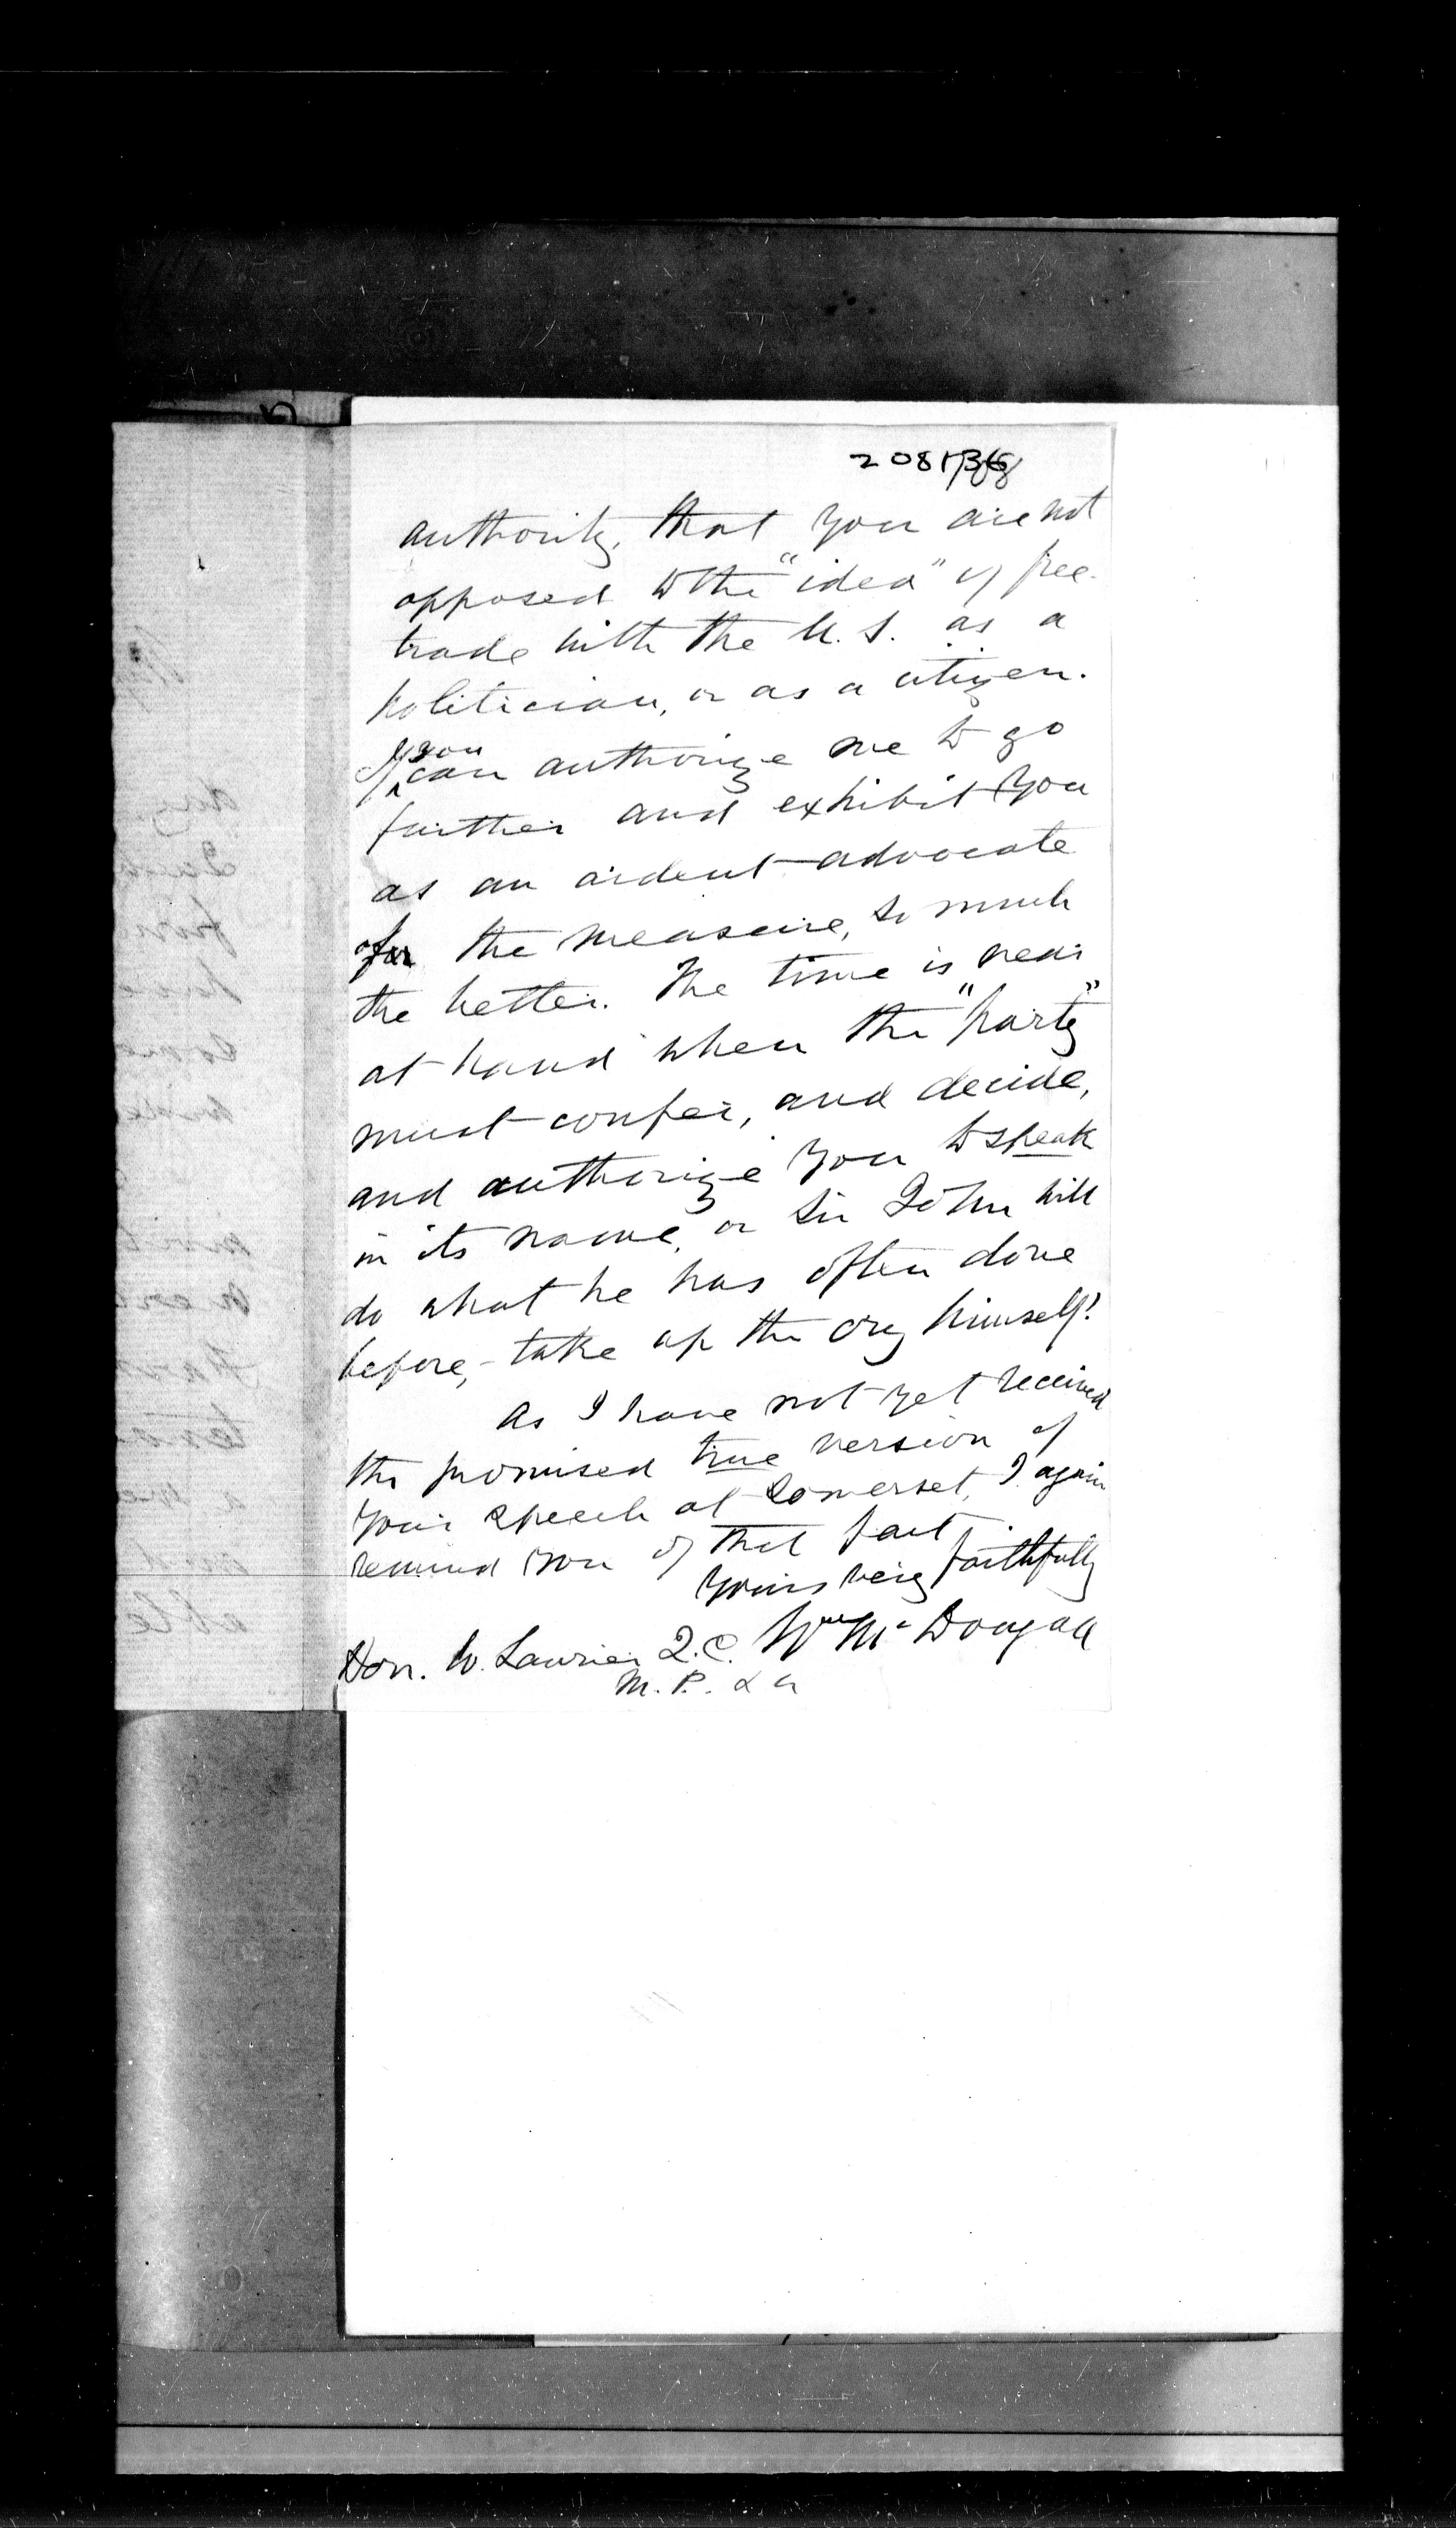 authority, that you are not
opposed to the "idea" of free-
trade with the U.S. as a
politician, or as a citizen.
If you can authorize me to go
further and exhibit you
as an ardent advocate
of the measure, so much
the better. The time is near
at hand when the "party"
must confer, and decide,
and authorize you to speak
in its name, or Sir John will
do what he has often done
before, - take up the cry himself!
As I have not yet received
the promised true version of
your speech at Somerset, I again
remind you of that fact.
Yours very faithfully
Wm McDougall
Hon. W. Laurier Q.C.
M.P. &c